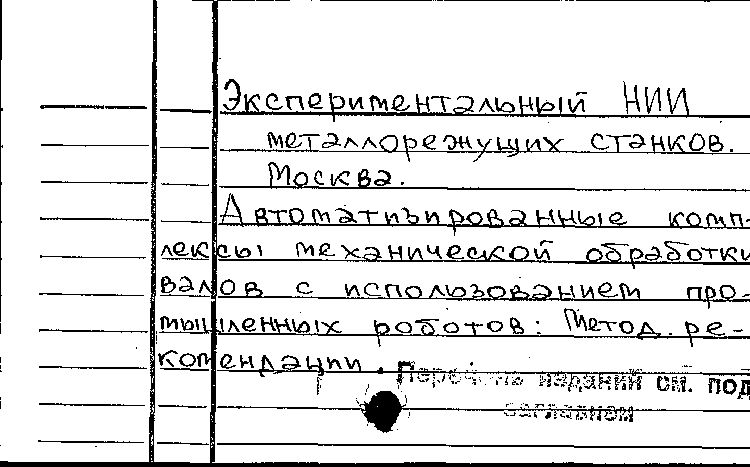 Экспериментальный НИИ
металлорежущих станков.
Москва.
Автоматизированные комп-
лексы механической обработки
валов с использованием про-
мышленных роботов: Метод. ре-
комендации.
Перечень изданий см. под
заглавием